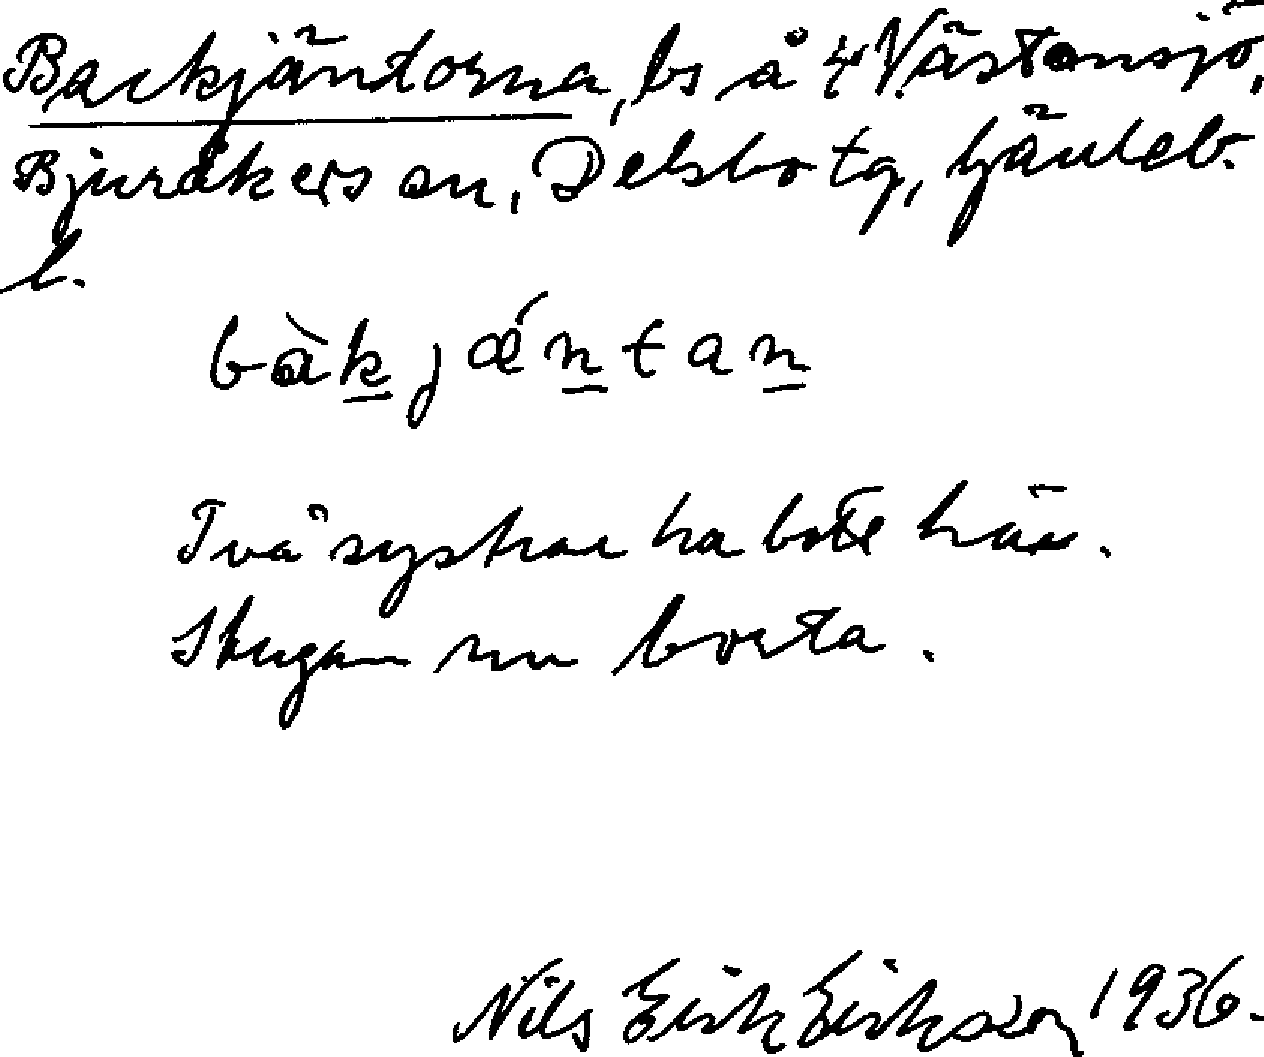 Backjäntorna, bs å 4 Västansjö,
Bjuråkers sn, Delsbo tg, Gävleb.
l.
bàkjǽntan
Två systrar ha bott här.
Stugan nu borta.
Nils Erik Eriksson 1936.